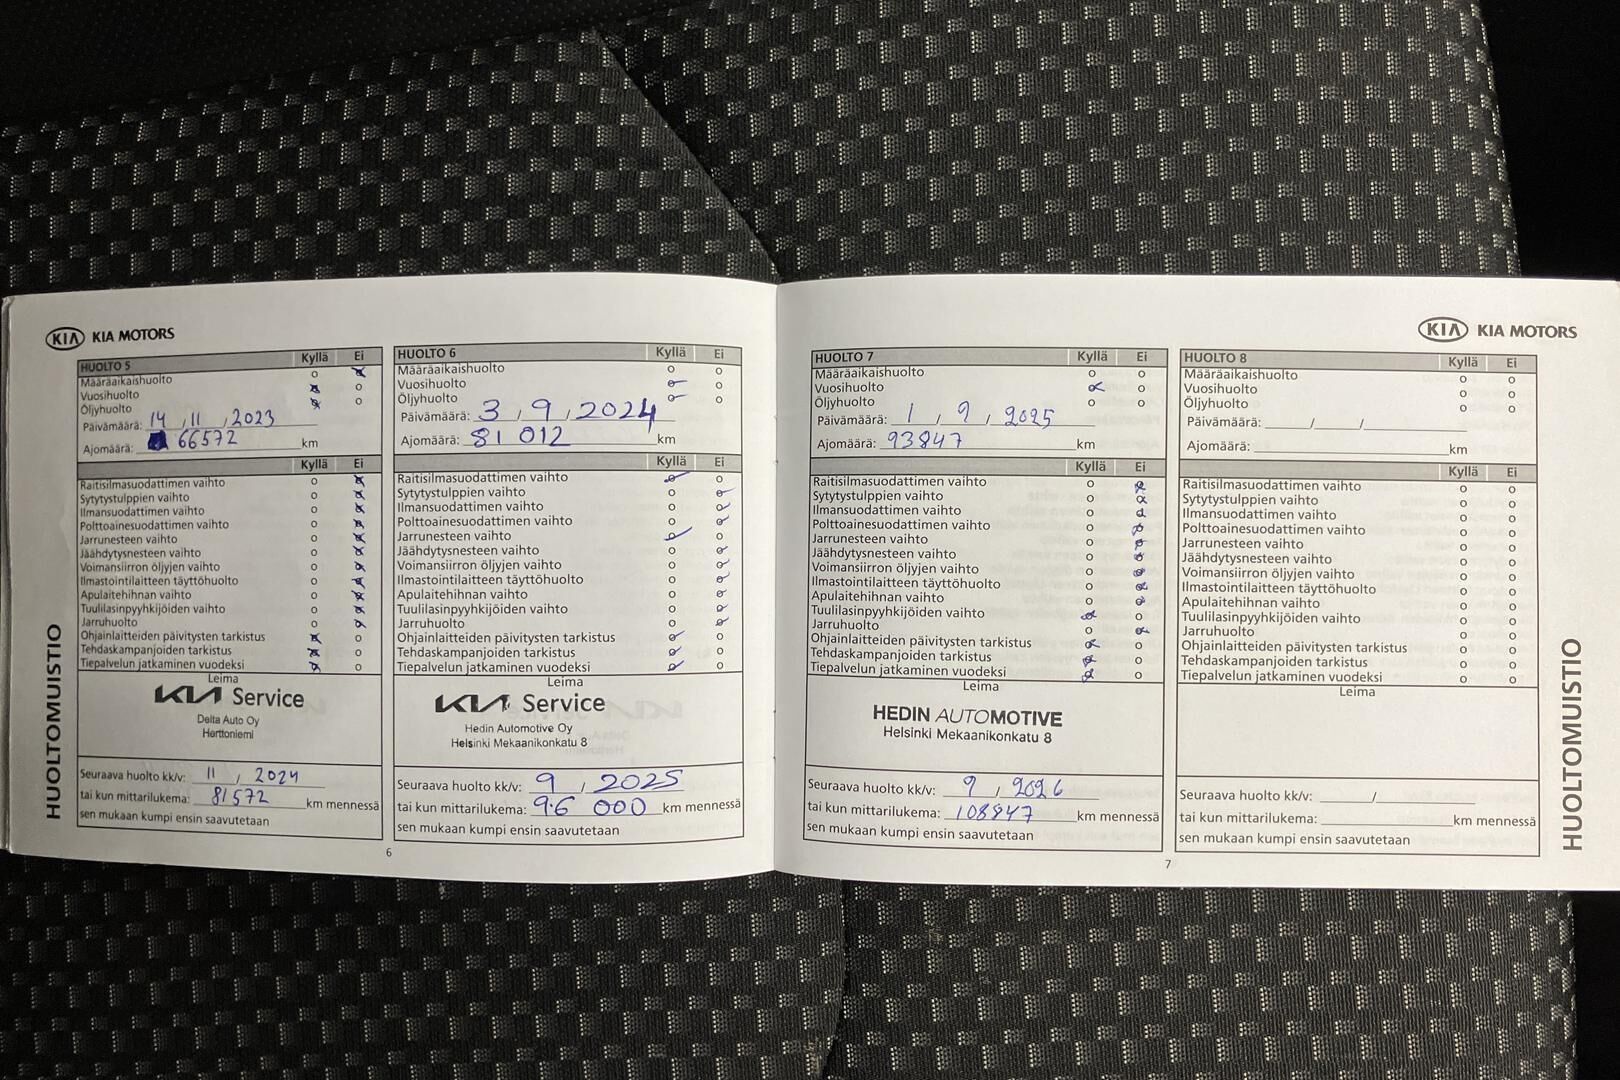 KIA KIA MOTORS
HUOLTO 5 Kyllä Ei
Määräaikaishuolto
Vuosihuolto
Öljyhuolto
Päivämäärä: 14 / 11 / 2023
Ajomäärä: 66572 km
Kyllä Ei
Raitisilmasuodattimen vaihto
Sytytystulppien vaihto
Ilmansuodattimen vaihto
Polttoainesuodattimen vaihto
Jarrunesteen vaihto
Jäähdytysnesteen vaihto
Voimansiirron öljyjen vaihto
Ilmastointilaitteen täyttöhuolto
Apulaitehihnan vaihto
Tuulilasinpyyhkijöiden vaihto
Jarruhuolto
Ohjainlaitteiden päivitysten tarkistus
Tehdaskampanjoiden tarkistus
Tiepalvelun jatkaminen vuodeksi
Leima
KIA Service
Delta Auto Oy
Herttoniemi
Seuraava huolto kk/v: 11 / 2024
tai kun mittarilukema: 81572 km mennessä
sen mukaan kumpi ensin saavutetaan
HUOLTOMUISTIO
HUOLTO 6 Kyllä Ei
Määräaikaishuolto
Vuosihuolto
Öljyhuolto
Päivämäärä: 3 / 9 / 2024
Ajomäärä: 81 012 km
Kyllä Ei
Raitisilmasuodattimen vaihto
Sytytystulppien vaihto
Ilmansuodattimen vaihto
Polttoainesuodattimen vaihto
Jarrunesteen vaihto
Jäähdytysnesteen vaihto
Voimansiirron öljyjen vaihto
Ilmastointilaitteen täyttöhuolto
Apulaitehihnan vaihto
Tuulilasinpyyhkijöiden vaihto
Jarruhuolto
Ohjainlaitteiden päivitysten tarkistus
Tehdaskampanjoiden tarkistus
Tiepalvelun jatkaminen vuodeksi
Leima
KIA Service
Hedin Automotive Oy
Helsinki Mekaanikonkatu 8
Seuraava huolto kk/v: 9 / 2025
tai kun mittarilukema: 96 000 km mennessä
sen mukaan kumpi ensin saavutetaan
6
KIA KIA MOTORS
HUOLTO 7 Kyllä Ei
Määräaikaishuolto
Vuosihuolto
Öljyhuolto
Päivämäärä: 1 / 9 / 2025
Ajomäärä: 93847 km
Kyllä Ei
Raitisilmasuodattimen vaihto
Sytytystulppien vaihto
Ilmansuodattimen vaihto
Polttoainesuodattimen vaihto
Jarrunesteen vaihto
Jäähdytysnesteen vaihto
Voimansiirron öljyjen vaihto
Ilmastointilaitteen täyttöhuolto
Apulaitehihnan vaihto
Tuulilasinpyyhkijöiden vaihto
Jarruhuolto
Ohjainlaitteiden päivitysten tarkistus
Tehdaskampanjoiden tarkistus
Tiepalvelun jatkaminen vuodeksi
Leima
HEDIN AUTOMOTIVE
Helsinki Mekaanikonkatu 8
Seuraava huolto kk/v: 9 / 2026
tai kun mittarilukema: 108847 km mennessä
sen mukaan kumpi ensin saavutetaan
HUOLTO 8 Kyllä Ei
Määräaikaishuolto
Vuosihuolto
Öljyhuolto
Päivämäärä: / /
Ajomäärä: km
Kyllä Ei
Raitisilmasuodattimen vaihto
Sytytystulppien vaihto
Ilmansuodattimen vaihto
Polttoainesuodattimen vaihto
Jarrunesteen vaihto
Jäähdytysnesteen vaihto
Voimansiirron öljyjen vaihto
Ilmastointilaitteen täyttöhuolto
Apulaitehihnan vaihto
Tuulilasinpyyhkijöiden vaihto
Jarruhuolto
Ohjainlaitteiden päivitysten tarkistus
Tehdaskampanjoiden tarkistus
Tiepalvelun jatkaminen vuodeksi
Leima
Seuraava huolto kk/v: /
tai kun mittarilukema: km mennessä
sen mukaan kumpi ensin saavutetaan
HUOLTOMUISTIO
7